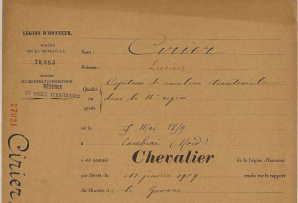 LÉGION D'HONNEUR.
NUMÉRO
DE LA MATRICULE
78353
Nom :
Cirier
Prénoms :
Lucien
RÉSERVE
ET ARMÉE TERRITORIALE
Qualité
ou
grade
Capitaine de cavalerie territoriale
dans la région
né le
Mai
à
Cambrai (Nord)
a été nommé
Chevalier
de la Légion d'Honneur
par décret du
janvier 1909
rendu sur le rapport
du Ministre de
la Guerre
Cirier